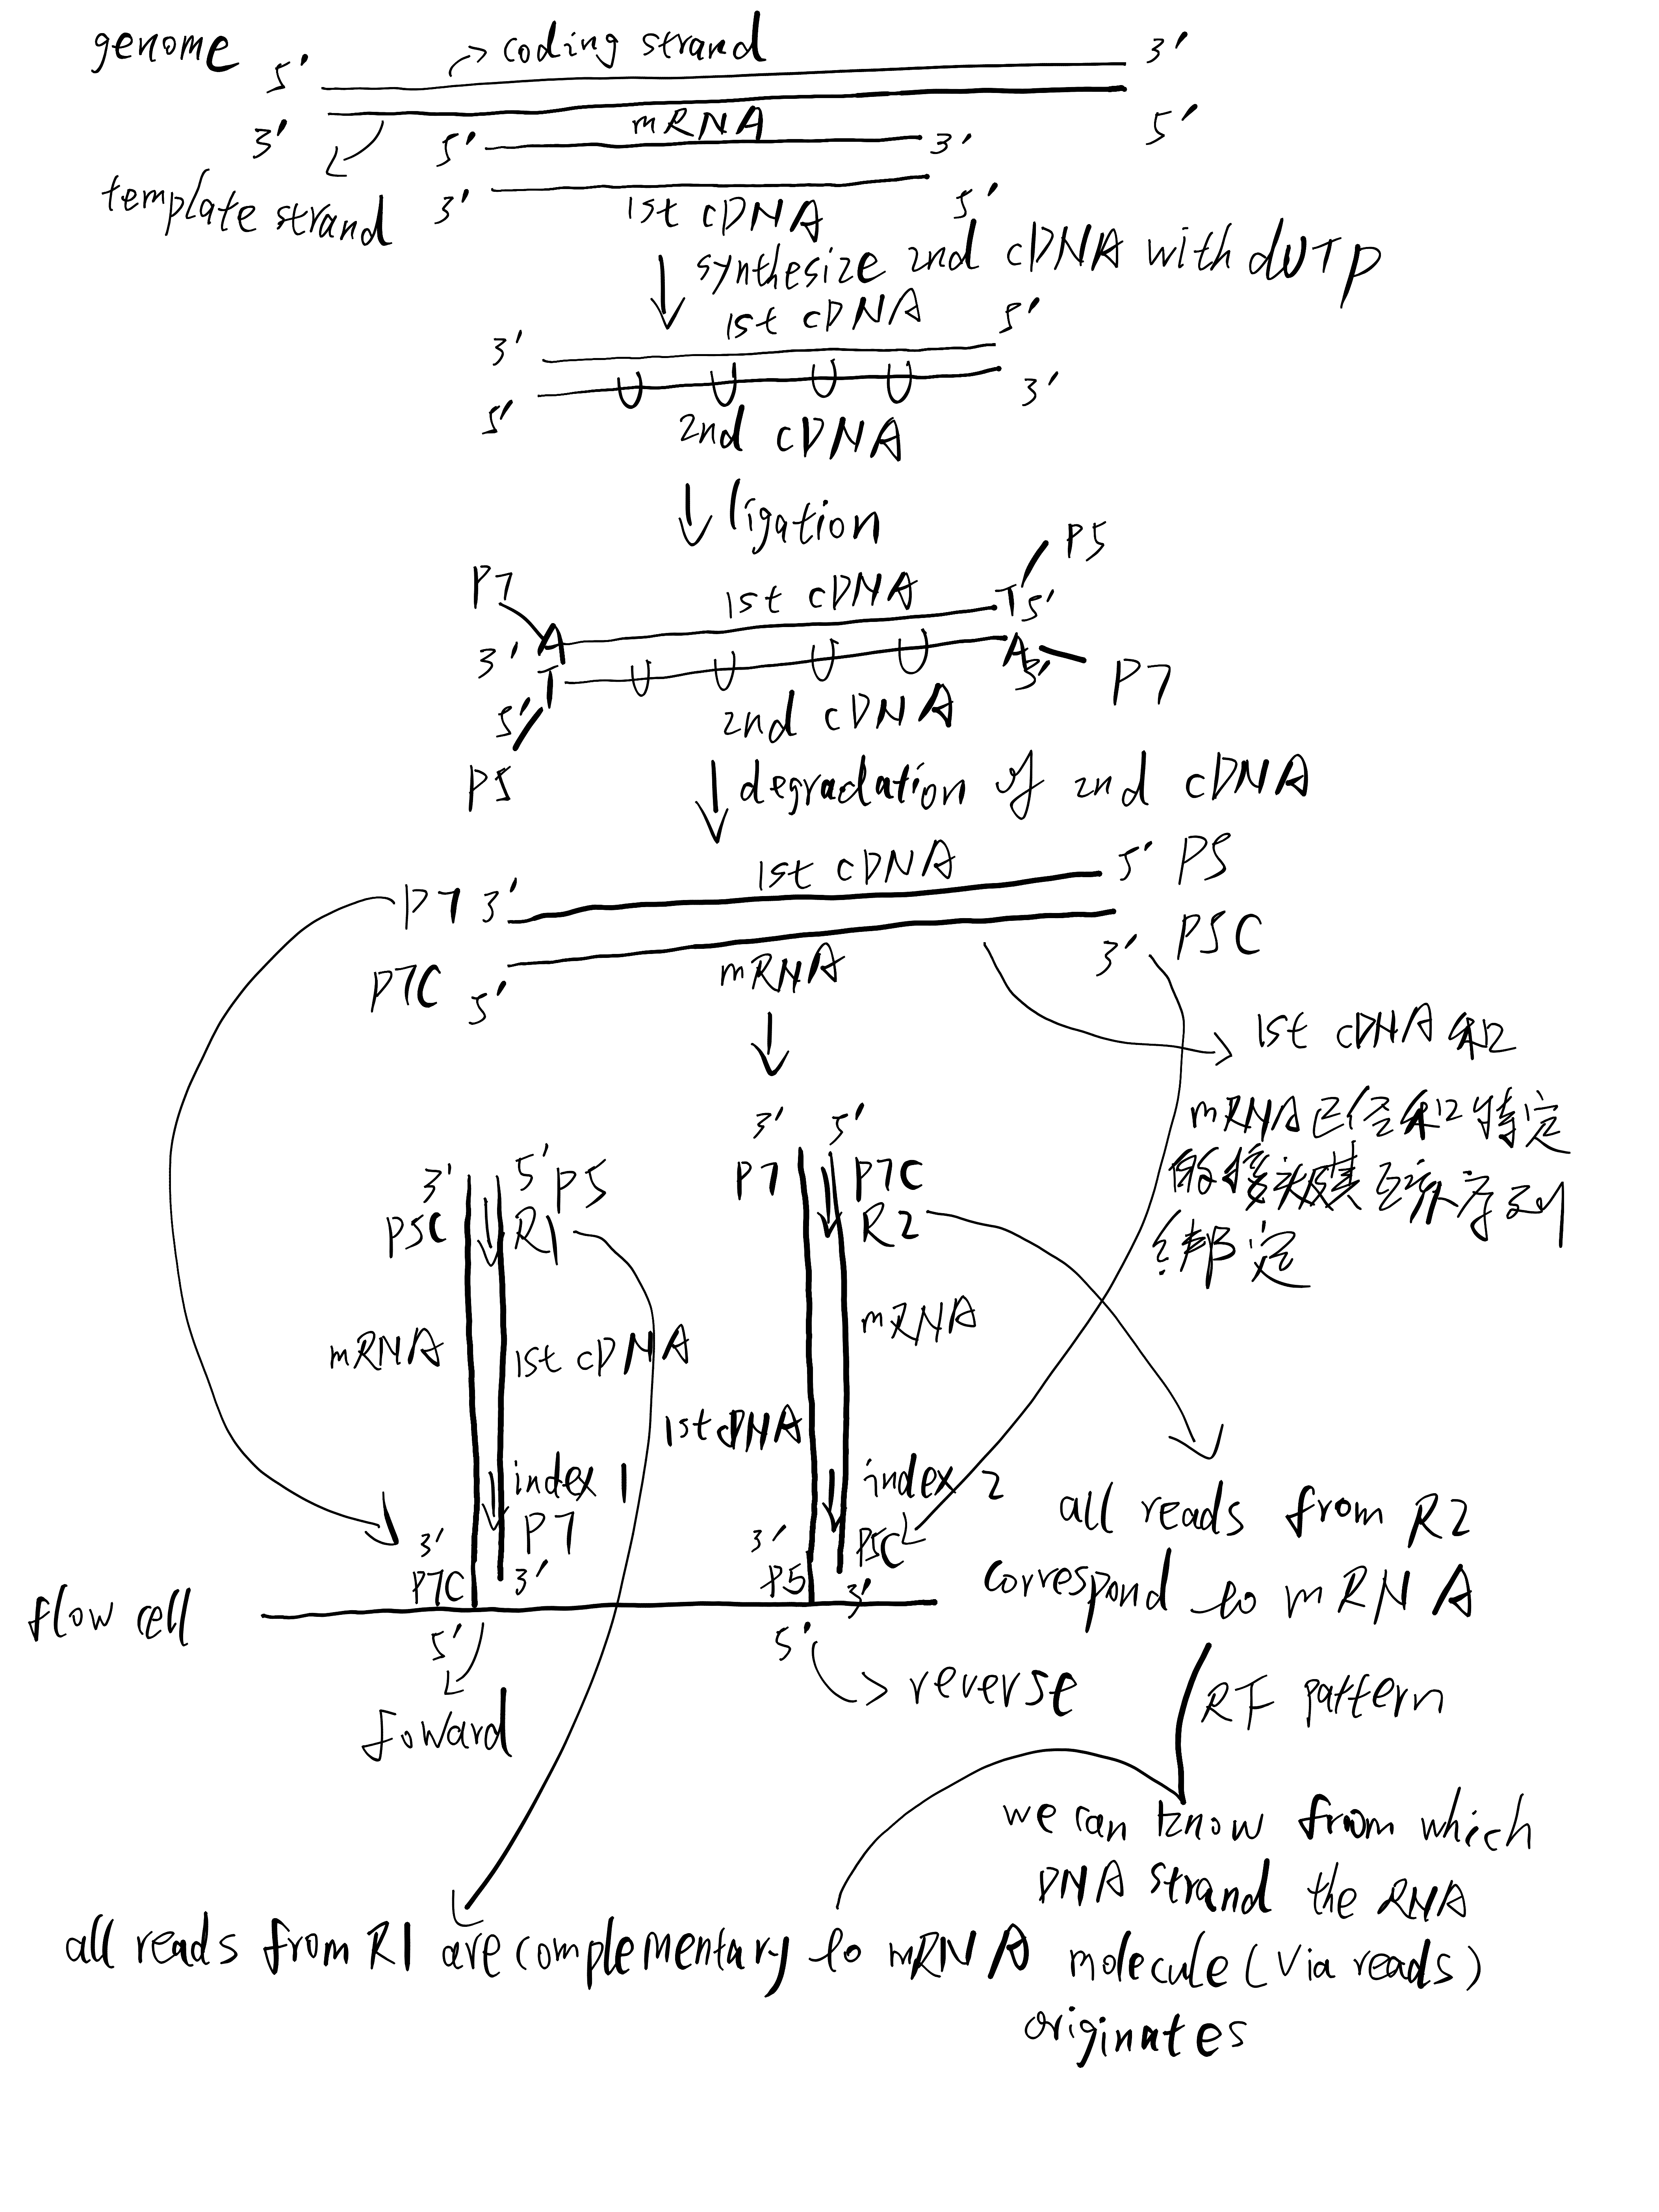 genome 5' coding strand 3'
3' 5' mRNA 3' 5'
template strand 3' 1st cDNA 5'
synthesize 2nd cDNA with dUTP
3' 1st cDNA 5'
U U U U
5' 2nd cDNA 3'
ligation
P7 1st cDNA T 5' P5
3' A A 3' P7
T U U U U
5' 2nd cDNA
P5
degradation of 2nd cDNA
P7 3' 1st cDNA 5' P5
P7C 5' mRNA 3' P5C
1st cDNA 和
mRNA 已经和特定
的接头或其互补序列
绑定
3' 5' P5
P5C R1
mRNA 1st cDNA
index 1
3' P7
P7C 3'
5'
foward
3' 5'
P7 P7C
R2
mRNA
1st cDNA
index 2
3' P5C
P5 3'
5'
reverse
flow cell
all reads from R2
correspond to mRNA
RF pattern
we can know from which
DNA strand the RNA
molecule (via reads)
originates
all reads from R1 are complementary to mRNA